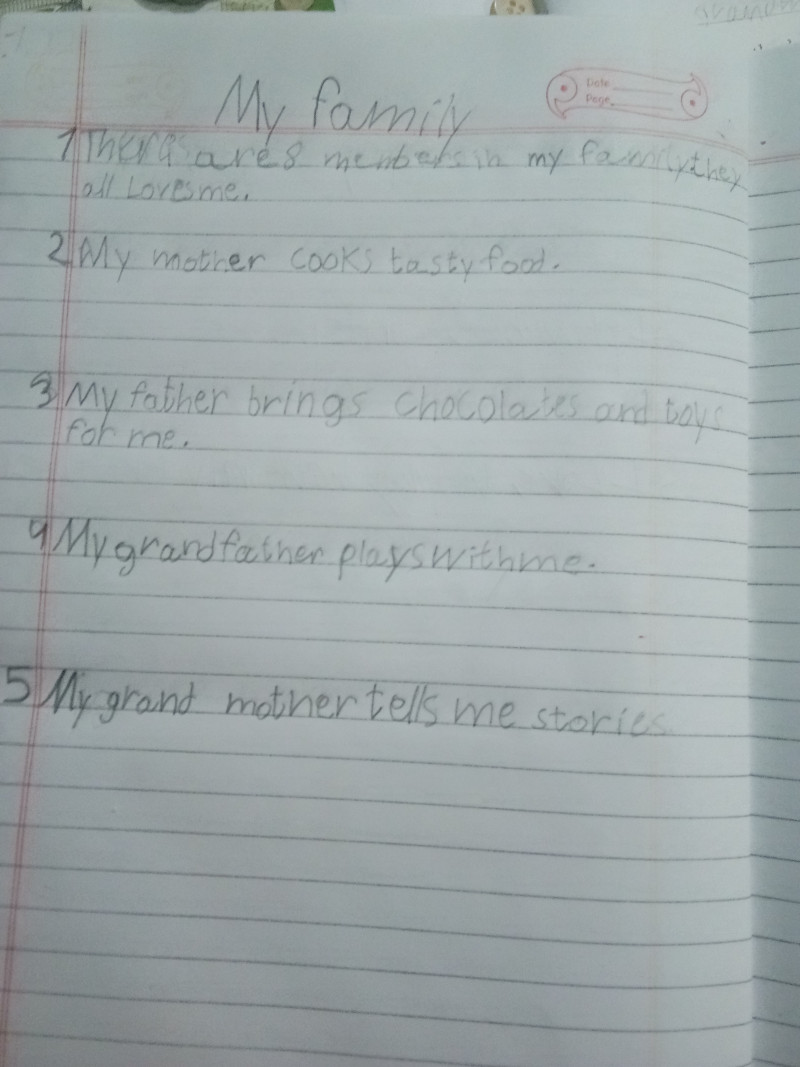 My family
Date
Page
1 There are 8 members in my family they
all Loves me.
2 My mother cooks tasty food.
3 My father brings chocolates and toys
for me.
4 My grandfather plays with me.
5 My grand mother tells me stories